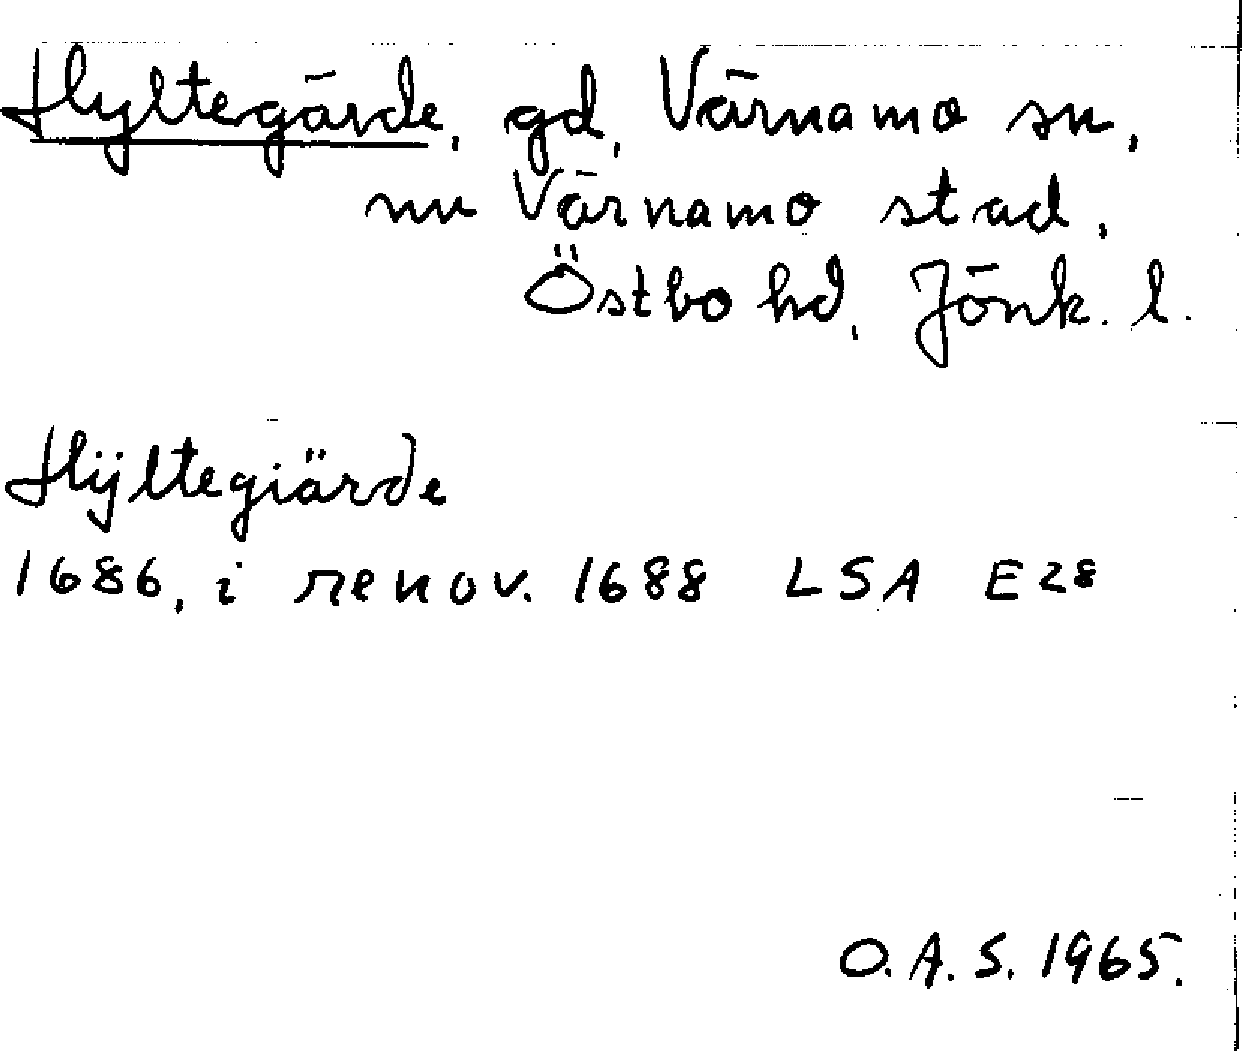 Hyltegärde, gd, Värnamo sn,
nu Värnamo stad,
Östbo hd, Jönk. l.
Hÿltegiärde
1686, i renov. 1688 LSA E28
O.A.S. 1965.